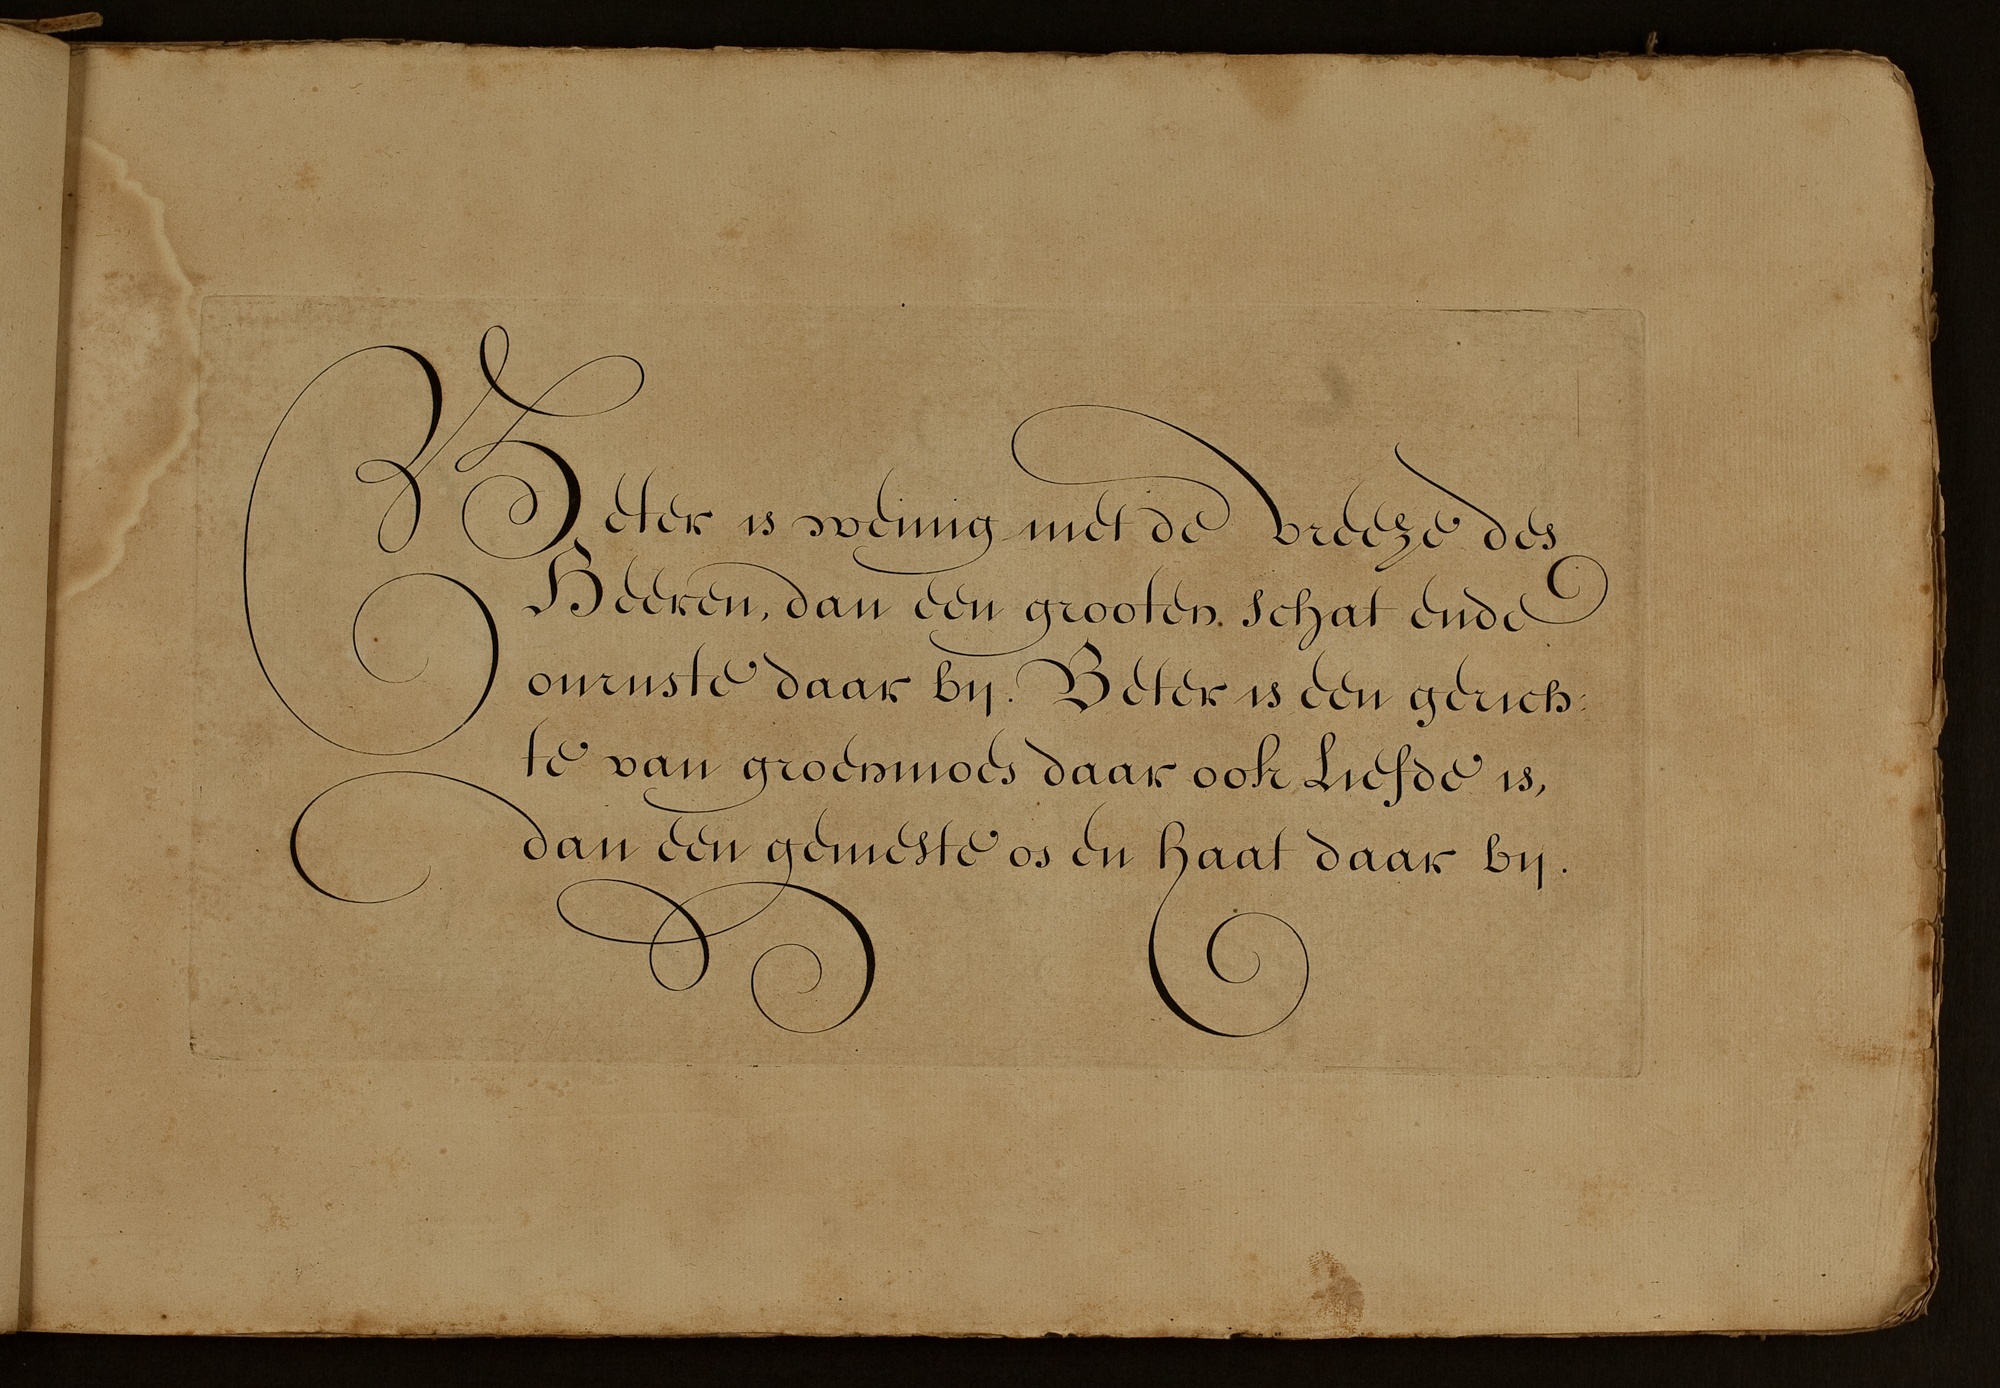 Beter is weinig met de vreeze des
Heeren, dan een grooten schat ende
onruste daar by. Beter is een gerich:
te van groenmoes daar ook Liefde is,
dan een gemeste os en haat daar by.